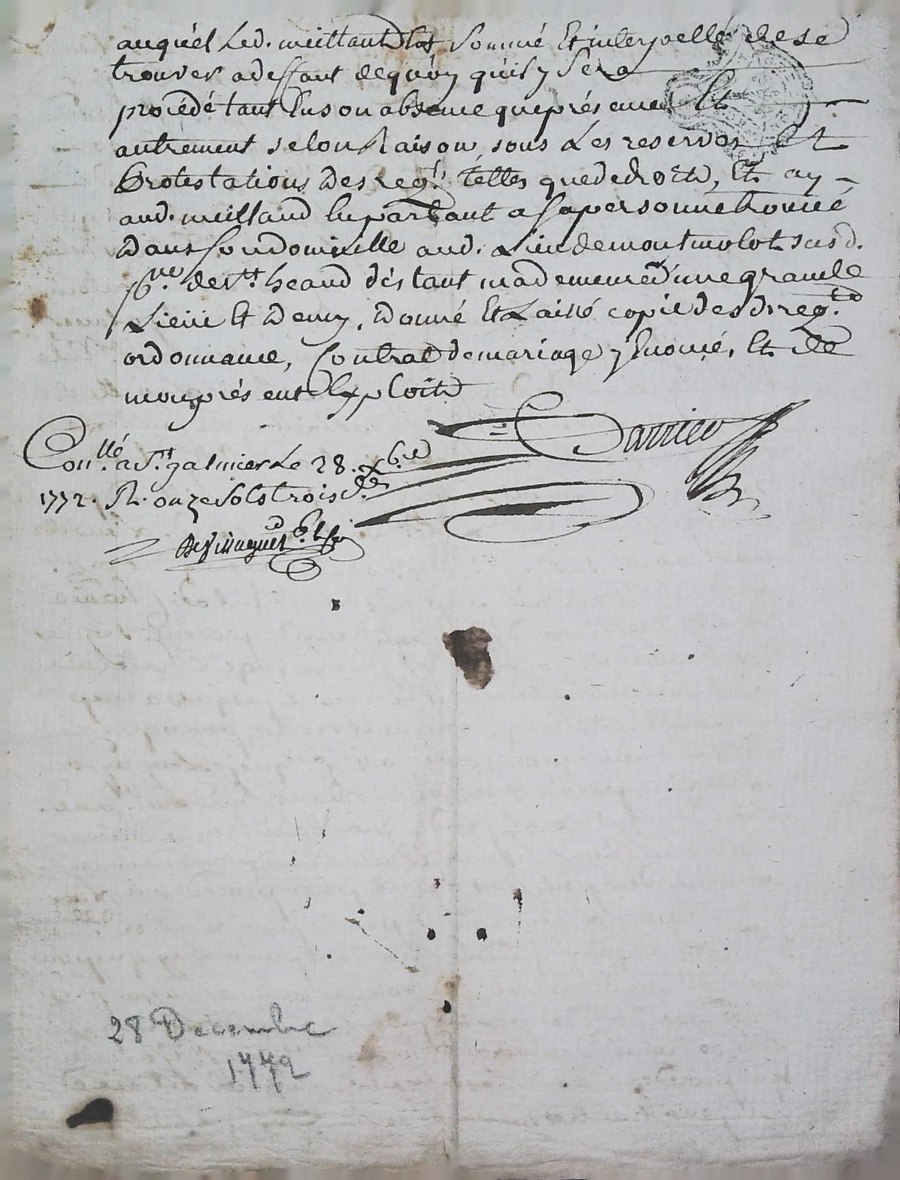 auquel Led. meillant est sommé Et interpellé de se
trouver a deffaut de quoy qu'il y sera
procédé tant En son absence que présence Et
autrement selon Raison sous Les reserves Et
Protestations des reqts telles que de droit, Et ay
aud. meilland En parlant a sa personne trouvé
dans son domicille aud. Lieu de montmolot susd.
psse de st heand distant de ma demeure d'une grande
Lieüe Et Demy, donné Et Laissé copie desd. reqte
ordonnance, Contrat de mariage y Enoncé, Et de
mon présent Exploit
Conllé a St galmier Le 28. Xbre
1772. R. onze sols trois drs
28 Decembre
1772